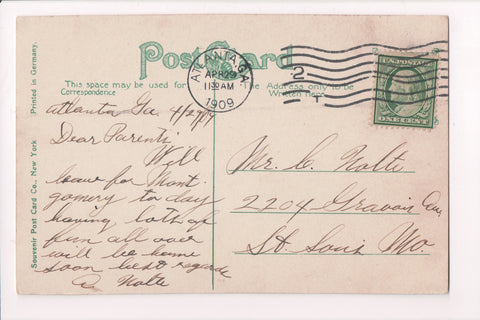 Post Card
This space may be used for Correspondence
The Address only to be Written here
Printed in Germany.
Souvenir Post Card Co., New York
ATLANTA, GA.
APR 29
11 30 AM
1909
2
T
U.S. POSTAGE
ONE CENT
Atlanta Ga. 4/29/09
Dear Parents
Will
leave for Mont
gomery to day
having lots of
fun all over
will be home
soon best regards
C. Nolte
Mr. C. Nolte
2204 Gravois Ave
St. Louis Mo